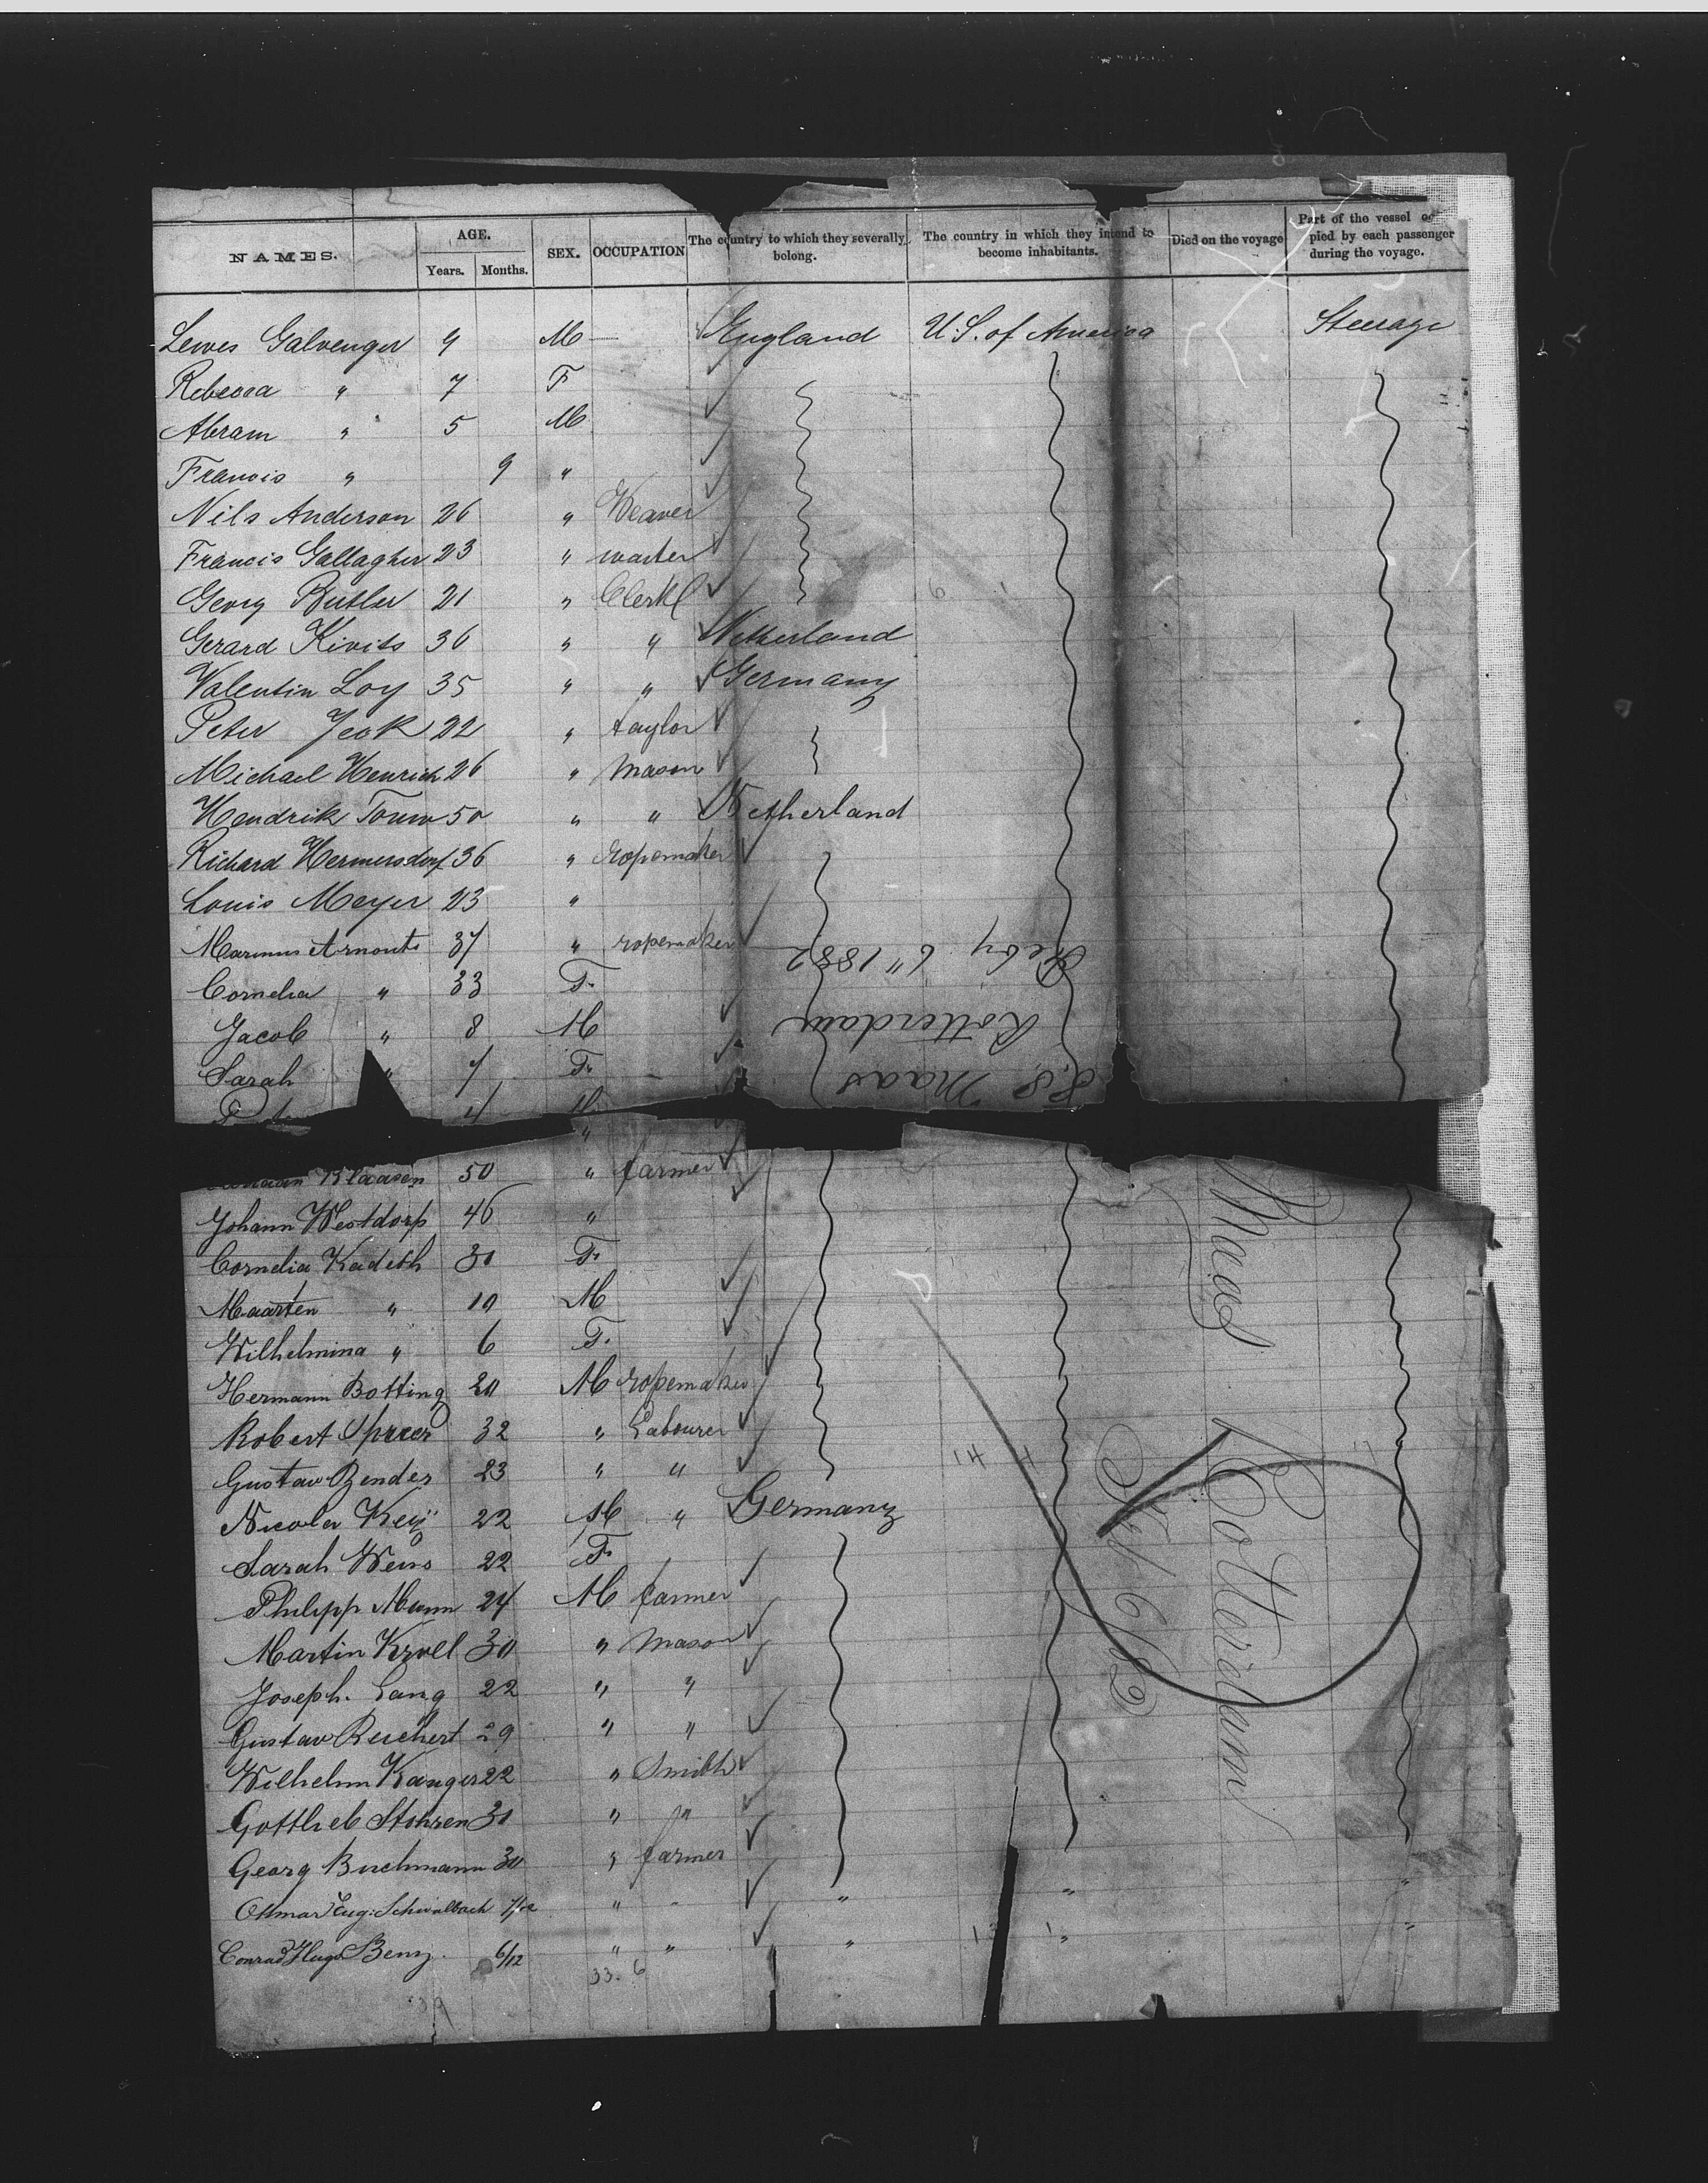 NAMES. AGE. Years. Months. SEX. OCCUPATION The country to which they severally belong. The country in which they intend to become inhabitants. Died on the voyage Part of the vessel occupied by each passenger during the voyage.
Lewes Galvenger 9 M England U.S. of America Steerage
Rebecca " 7 F
Abram " 5 M
Francis " 9 "
Nils Anderson 26 " Weaver
Francis Gallagher 23 " waiter
Georg Butler 21 " Clerk
Gerard Kivits 36 " " Netherland
Valentin Loy 35 " " Germany
Peter Jeck 22 " taylor
Michael Henrich 26 " Mason
Hendrik Touw 50 " " Netherland
Richard Hermersdorf 36 " Ropemaker
Louis Meyer 23 "
Marinus Arnouts 37 " ropemaker
Cornelia " 33 F.
Jacob " 8 M
Sarah " 7 F.
4 M
Feby 6" 1882
Rotterdam
S.S. Maas
Klaasen 50 " farmer
Johann Westdorp 46 "
Cornelia Kadeth 30 F.
Maarten " 10 M
Wilhelmina " 6 F.
Hermann Botting 20 M ropemaker
Robert Spreer 32 " Labourer
Gustav Bender 23 " "
Nicola Keij 22 M " Germany
Sarah Weiss 22 F.
Philipp Mumm 24 M farmer
Martin Kroll 30 " Mason
Joseph Lang 22 " "
Gustav Reichert 29 " "
Wilhelm Kanger 22 " Smith
Gottlieb Stohren 30 " "
Georg Buchmann 30 " farmer
Ottmar Eug. Schwalbach " " " "
Conrad Hugo Benz. 6/12 " " " " "
33. 6
39
Maas
Rotterdam
Feb 6 82